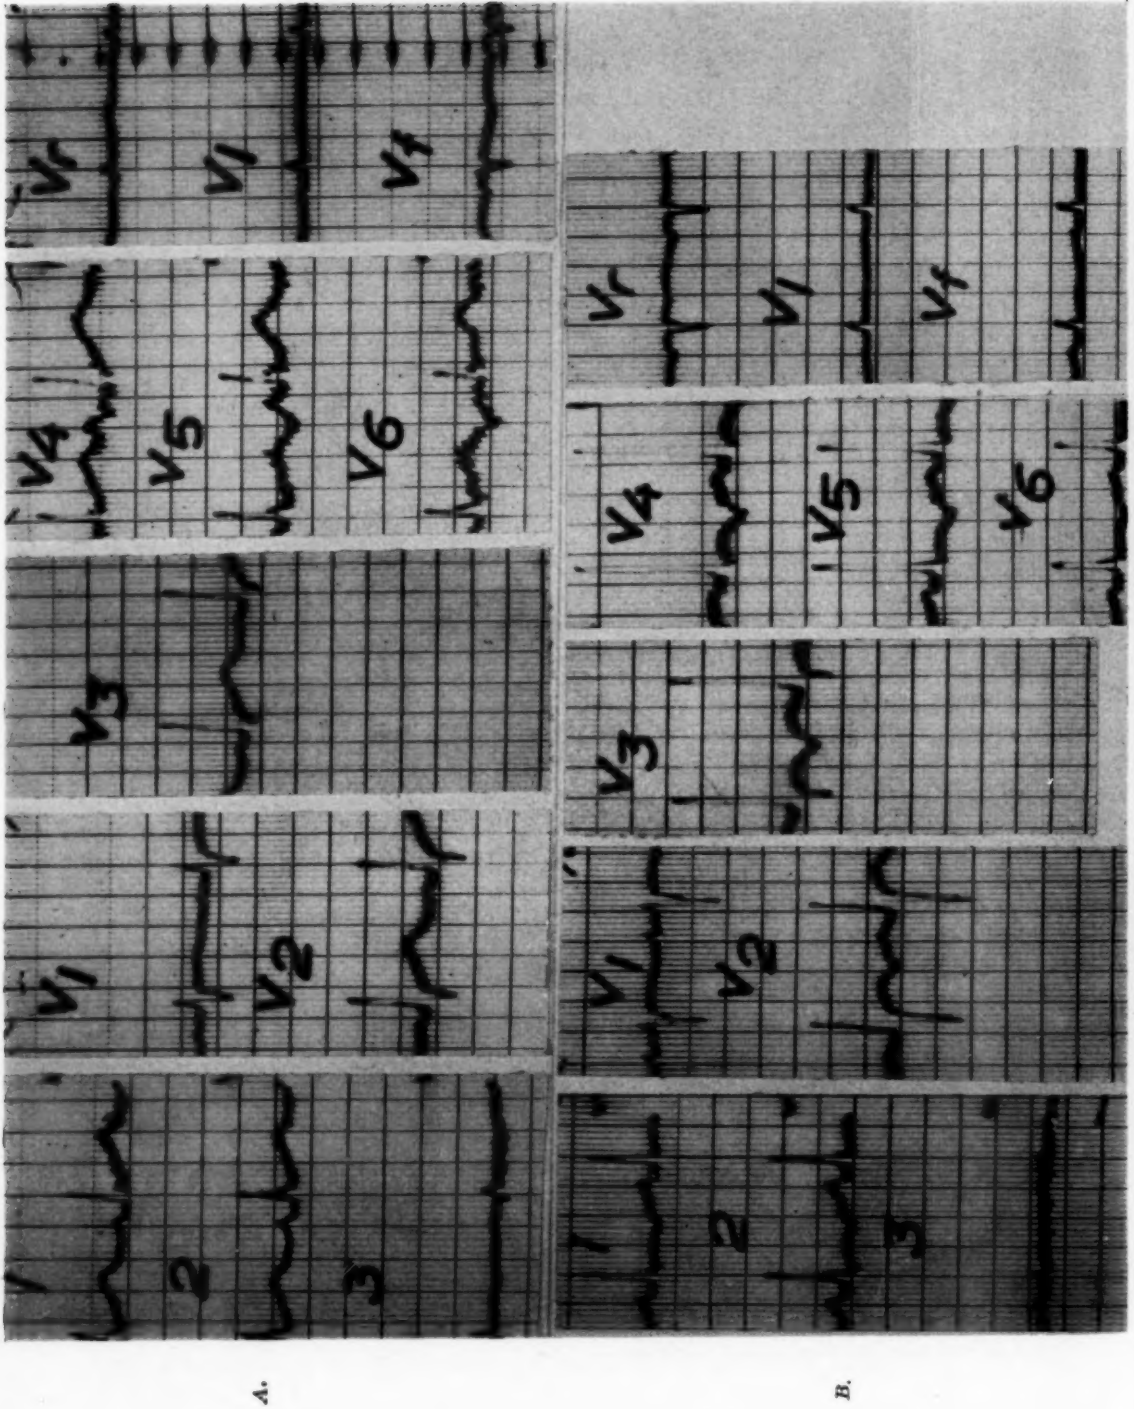 A.
1
2
3
V1
V2
V3
V4
V5
V6
Vr
Vl
Vf
B.
1
2
3
V1
V2
V3
V4
V5
V6
Vr
Vl
Vf